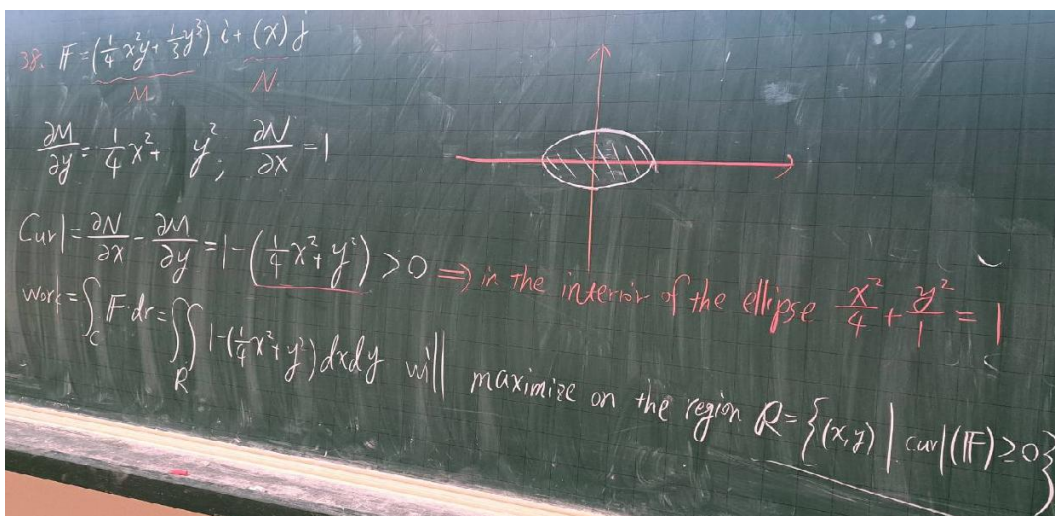 38. F = (1/4 x²y + 1/3 y³) i + (x) j
M N
∂M/∂y = 1/4 x² + y² ; ∂N/∂x = 1
Curl = ∂N/∂x - ∂M/∂y = 1 - (1/4 x² + y²) > 0 ⇒ in the interior of the ellipse x²/4 + y²/1 = 1
work = ∫_C F·dr = ∬_R 1 - (1/4 x² + y²) dxdy will maximize on the region R = {(x,y) | curl(F) ≥ 0}